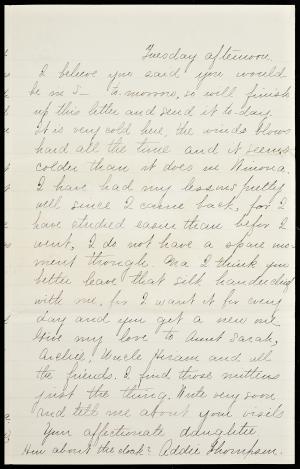 Tuesday afternoon.
I believe you said you would
be in S— to-morrow, so will finish
up this letter and send it to-day.
It is very cold here, the winds blows
hard all the time and it seems
colder than it does in Winona.
I have had my lessons pretty
well since I came back, for I
have studied easier than befor I
went, I do not have a spare mo-
ment though. Ma I think you
better leave that silk handerchief
with me, for I want it for every
day and you get a new one.
Give my love to Aunt Sarah,
Archie, Uncle Hiram and all
the friends. I find those mittens
just the thing. Write very soon
and tell me about your visits
Your affectionate daughter
How about the cloak? Addie Thompson.